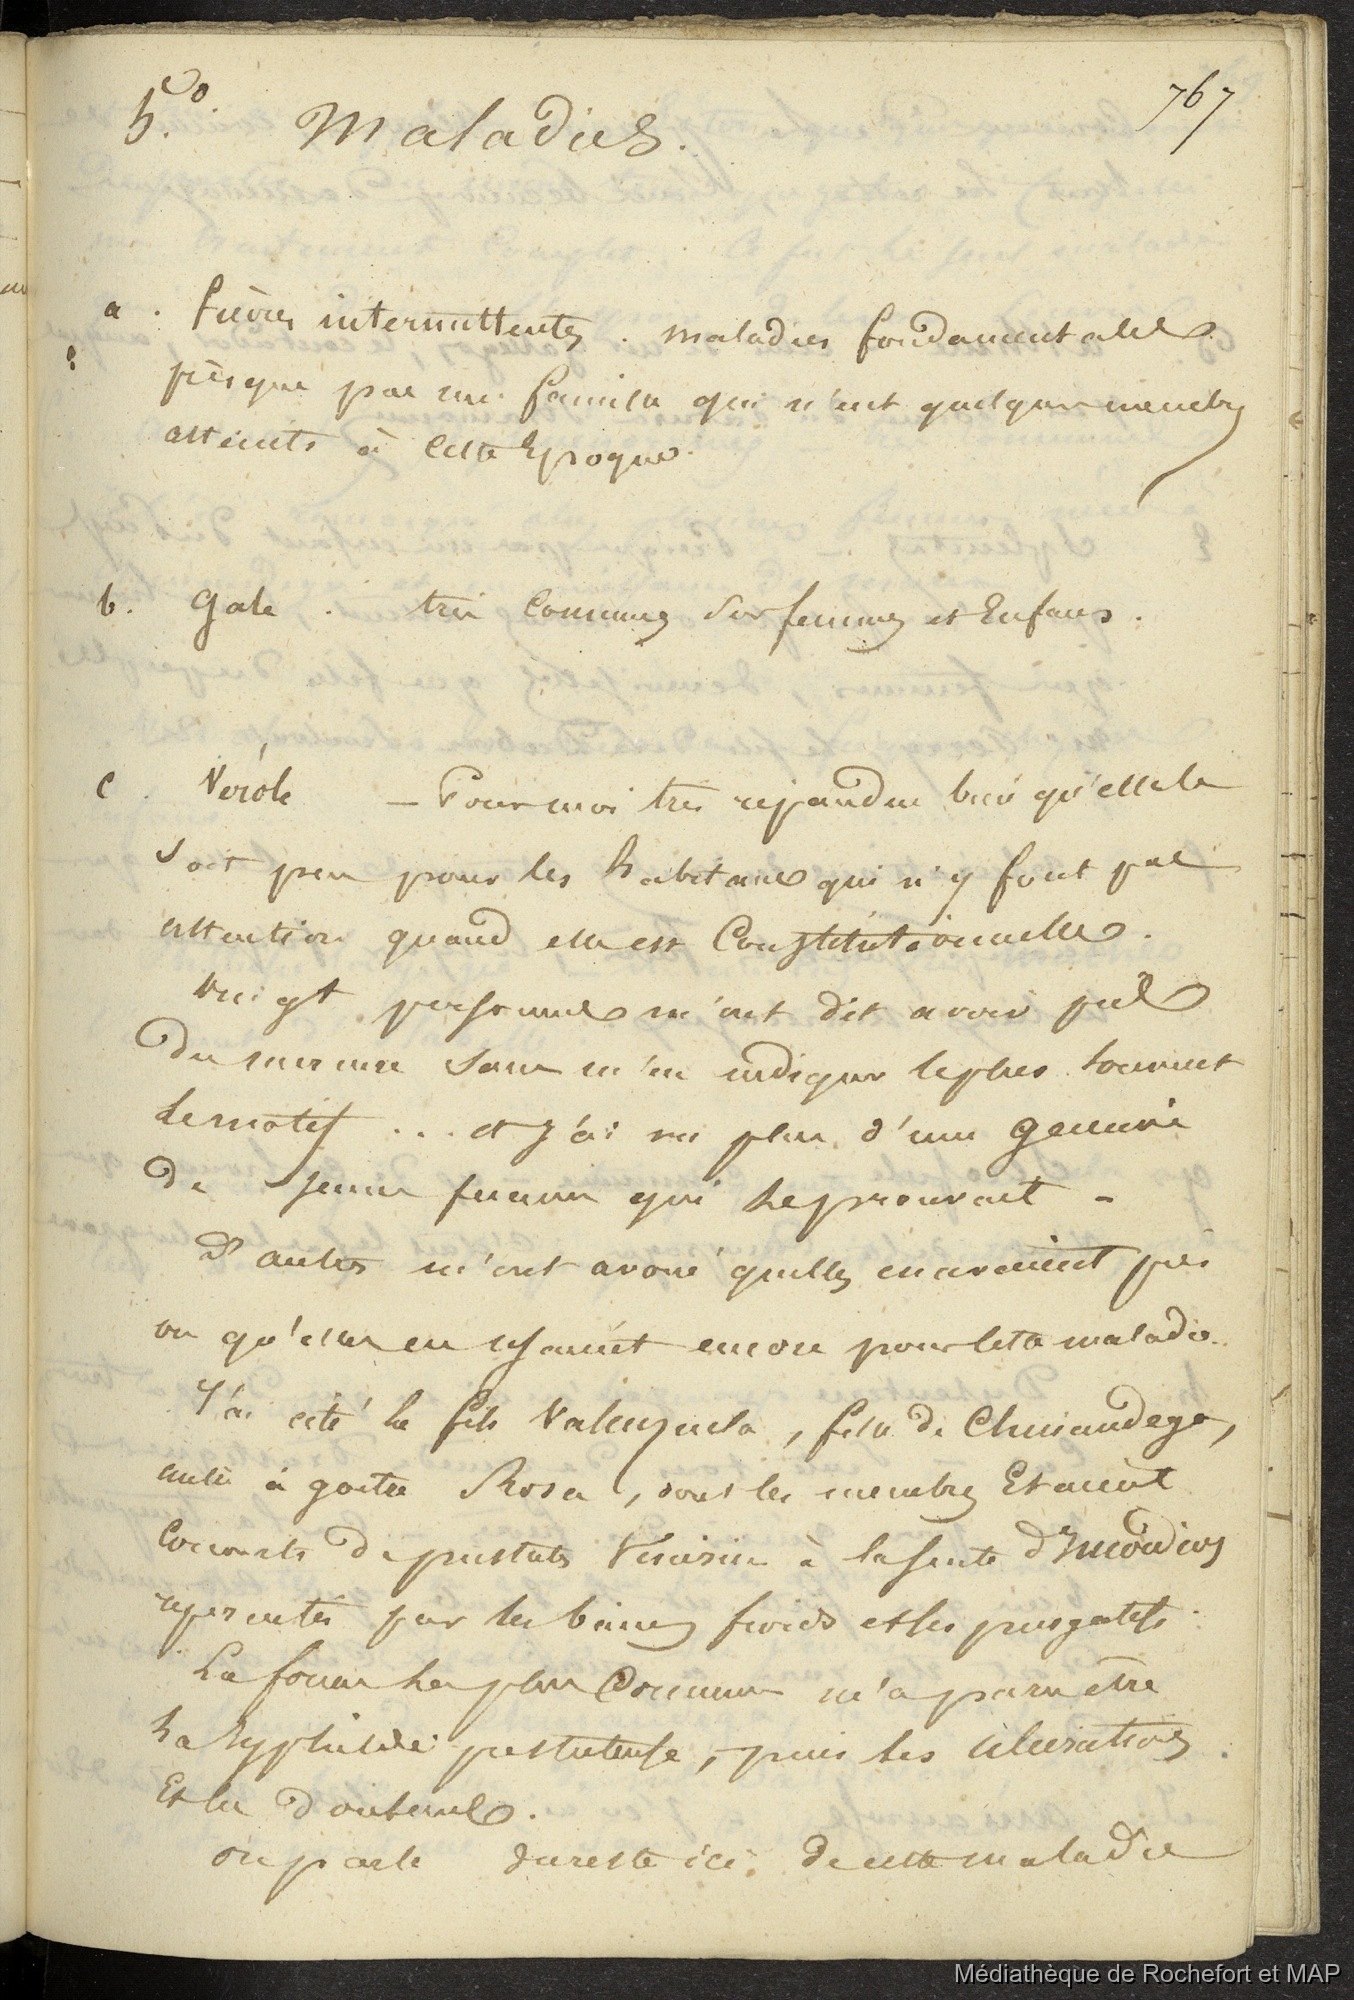 767
5.º Maladies.
a. fièvres intermittentes. maladies fondamentales.
presque pas une famille qui n'eut quelques membres
atteints à cette Epoque.
b. gale. très commune sur femmes et Enfans.
c. Vérole — Pour moi très repandue bien qu'elle le
soit peu pour les habitans qui n'y font pas
attention quand elle est Constitutionnelle.
vingt personnes m'ont dit avoir pris
du mercure sans m'en indiquer le plus souvent
le motif ... et j'ai vu plus d'une gencive
de jeune femme qui le prouvait -
D'autres m'ont avoué qu'elles en avaient pris
ou qu'elles en usaient encore pour cette maladie.
J'ai cité la fille Valenzuela, fille de Chinandega,
à Rosa, dont les membres Etaient
couverts de pustules à la suite
par les bains froids et les purgatifs.
La forme la plus commune m'a paru être
la Syphilide pustuleuse, puis les ulcérations
Et les douleurs.
on parle du reste ici de cette maladie
Médiathèque de Rochefort et MAP